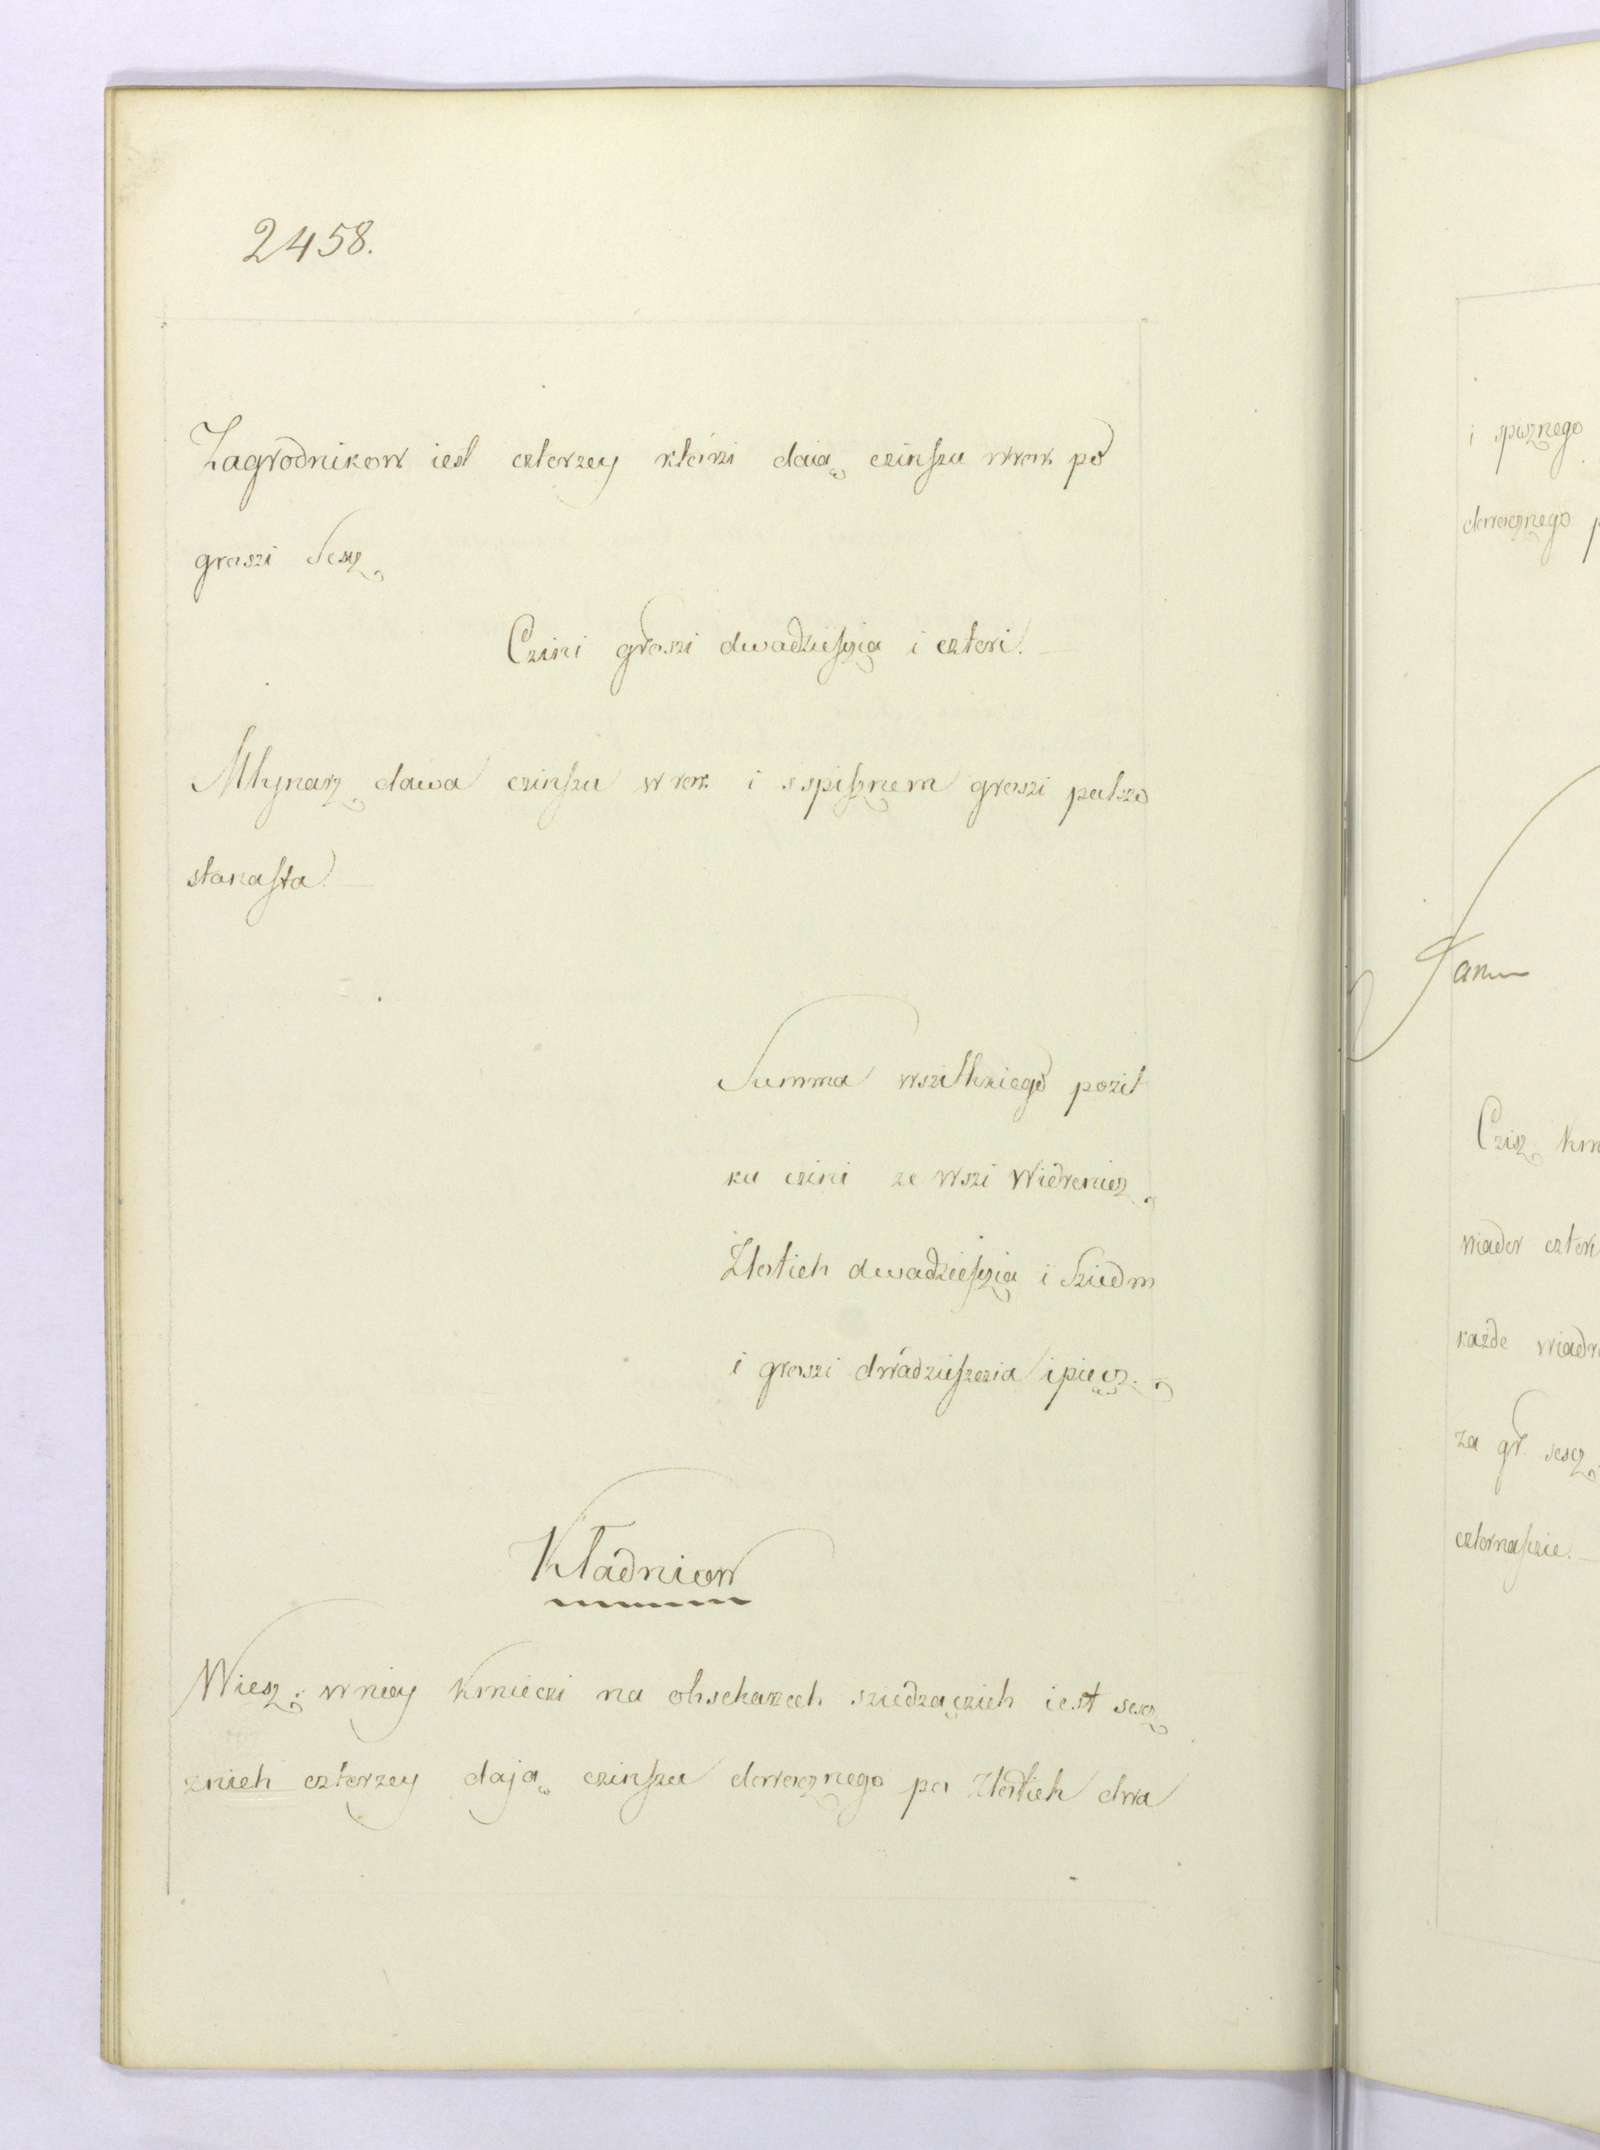 2458.
Zagrodnikow iest czterzey którzi daią czinszu wrok po
groszi Sescz
Czini groszi dwadziesczia i czteri.
Młynarz dawa czinszu w rok i sspisznem groszi pułczo
stanasta.
Summa wszitkiego pozit
ku czini ze wszi Widrenicz
Złotich dwadziesczia i Sziedm
i groszi dwadzieszczia i pięcz.
Kładniow
Wiesz. wniey kmieczi na obscharzech sziedzączich iest sescz
znich czterzey dają czinszu dorocznego po Złotich dwa
i spisznego
dorocznego
Czisz
wiader czteri
każde
za gr. sescz
czternascie.